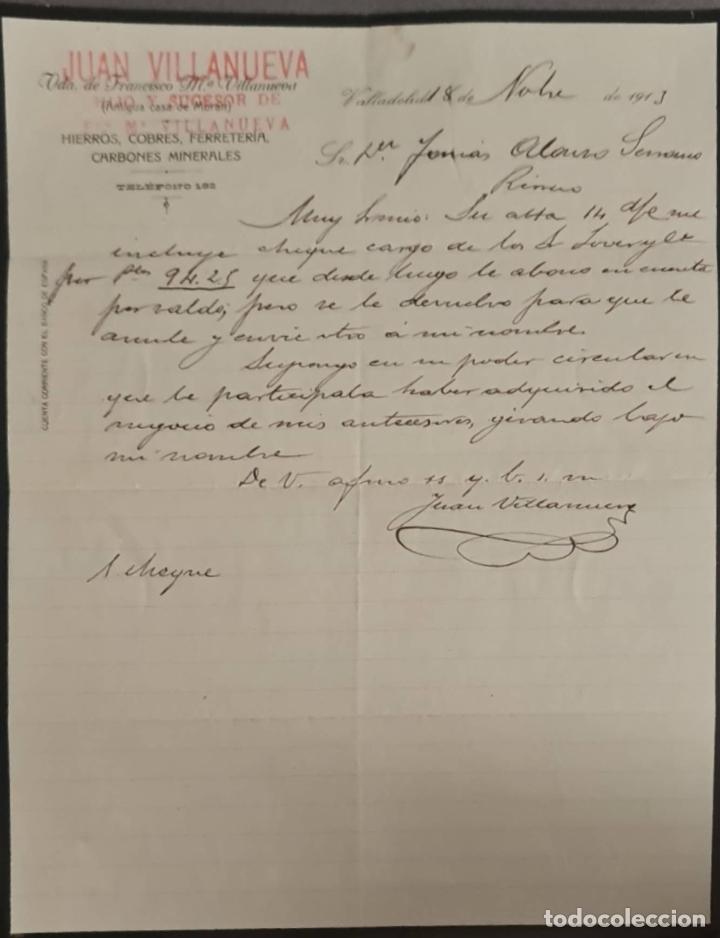 JUAN VILLANUEVA
Vda. de Francisco Mª Villanueva
HIJO Y SUCESOR DE
(Antigua Casa de Morán)
Mª VILLANUEVA
HIERROS, COBRES, FERRETERÍA,
CARBONES MINERALES
TELÉFONO 182
CUENTA CORRIENTE CON EL BANCO DE ESPAÑA
Valladolid 18 de Nobre de 1913
Sr. Dn Tomás Alonso Serrano
Muy Sr mio: Su atta 14 d/c me
incluye cheque cargo de los Sr
por ptas 94.25 que desde luego le abono en cuenta
por saldo; pero se le devuelvo para que le
anule y envie otro á mi nombre.
Supongo en su poder circular en
que le participaba haber adquirido el
negocio de mis antecesores, girando bajo
mi nombre
De V. afmo ss q. b. s. m
Juan Villanueva
1 cheque
todocoleccion
todocoleccion.net